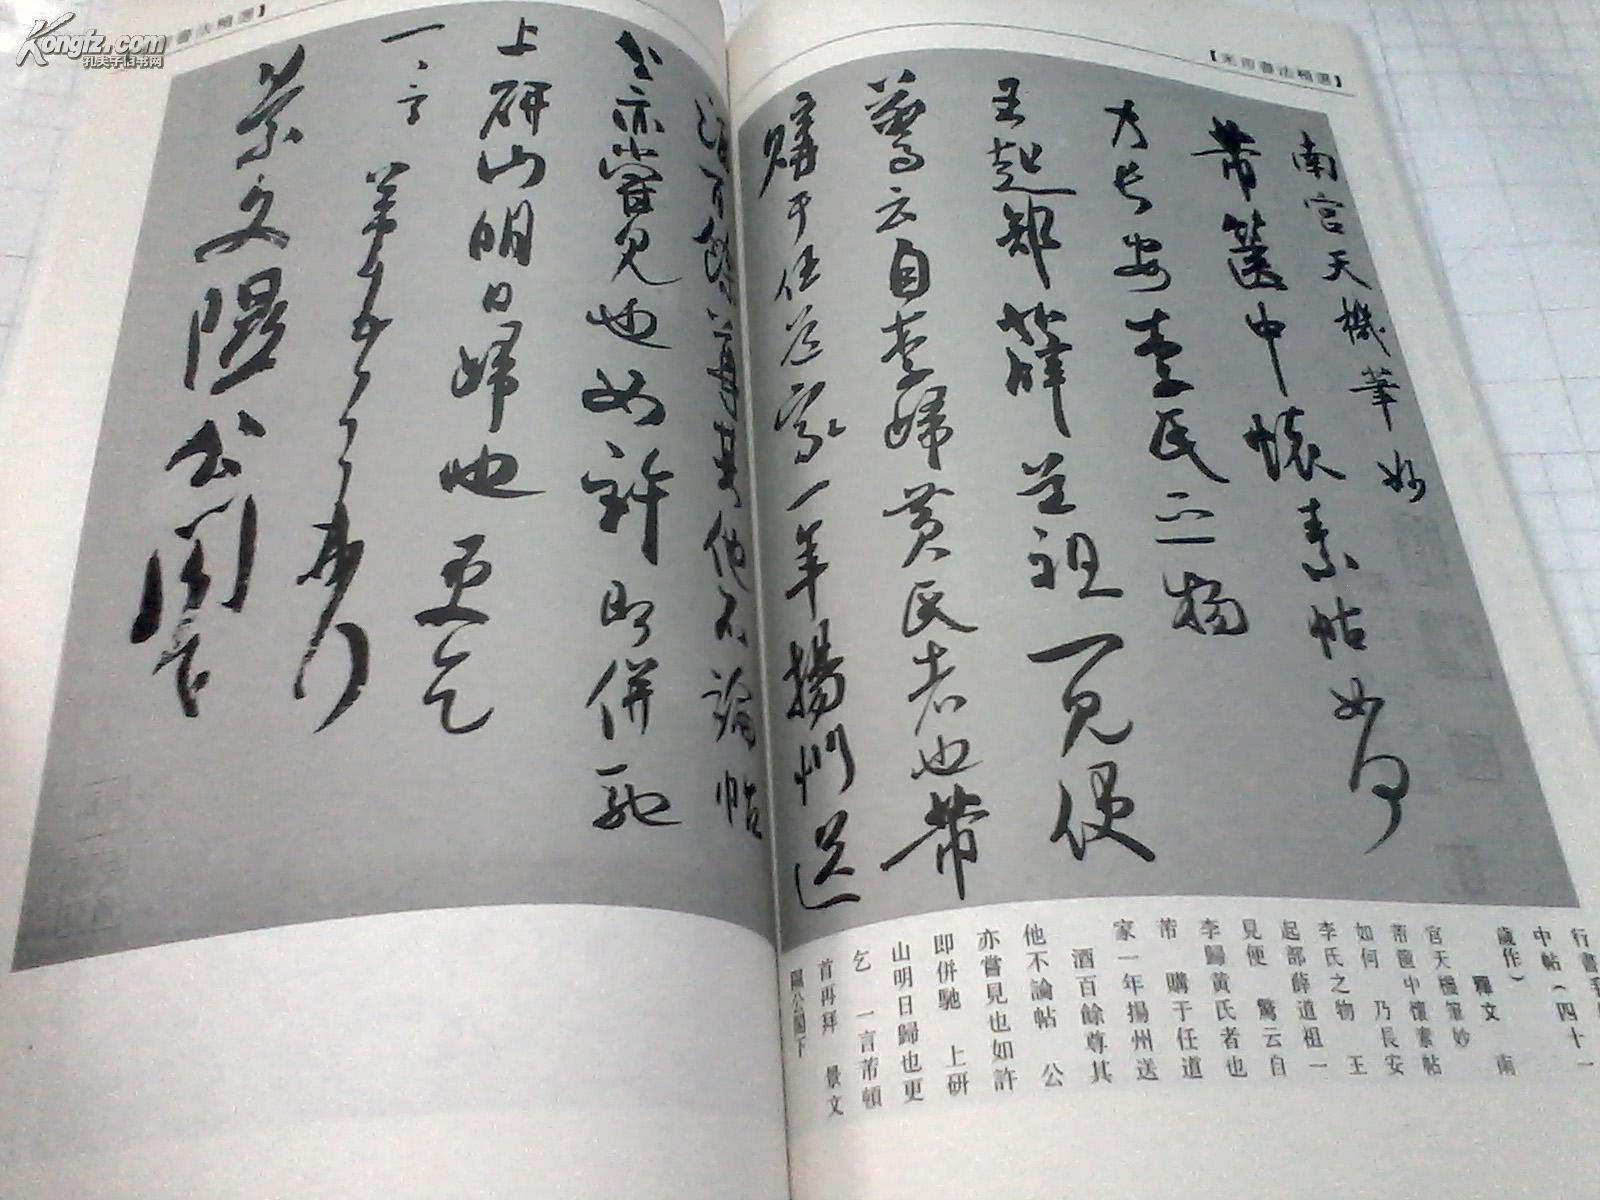 Kongfz.com
孔夫子旧书网
書法精選】
【米芾書法精選】
南宮天機筆妙
芾篋中懷素帖如何
乃長安李氏之物
王起部薛道祖一見便
驚云自李歸黃氏者也芾
購于任道家一年揚州送
酒百餘尊其他不論帖
公亦嘗見也如許即併馳
上研山明日歸也更乞
一言芾頓首再拜
景文隰公閣下
行書
中帖（四十一
歲作）
釋文 南
宮天機筆妙
芾篋中懷素帖
如何 乃長安
李氏之物 王
起部薛道祖一
見便 驚云自
李歸黃氏者也
芾 購于任道
家一年揚州送
酒百餘尊其
他不論帖 公
亦嘗見也如許
即併馳 上研
山明日歸也更
乞 一言芾頓
首再拜 景文
隰公閣下